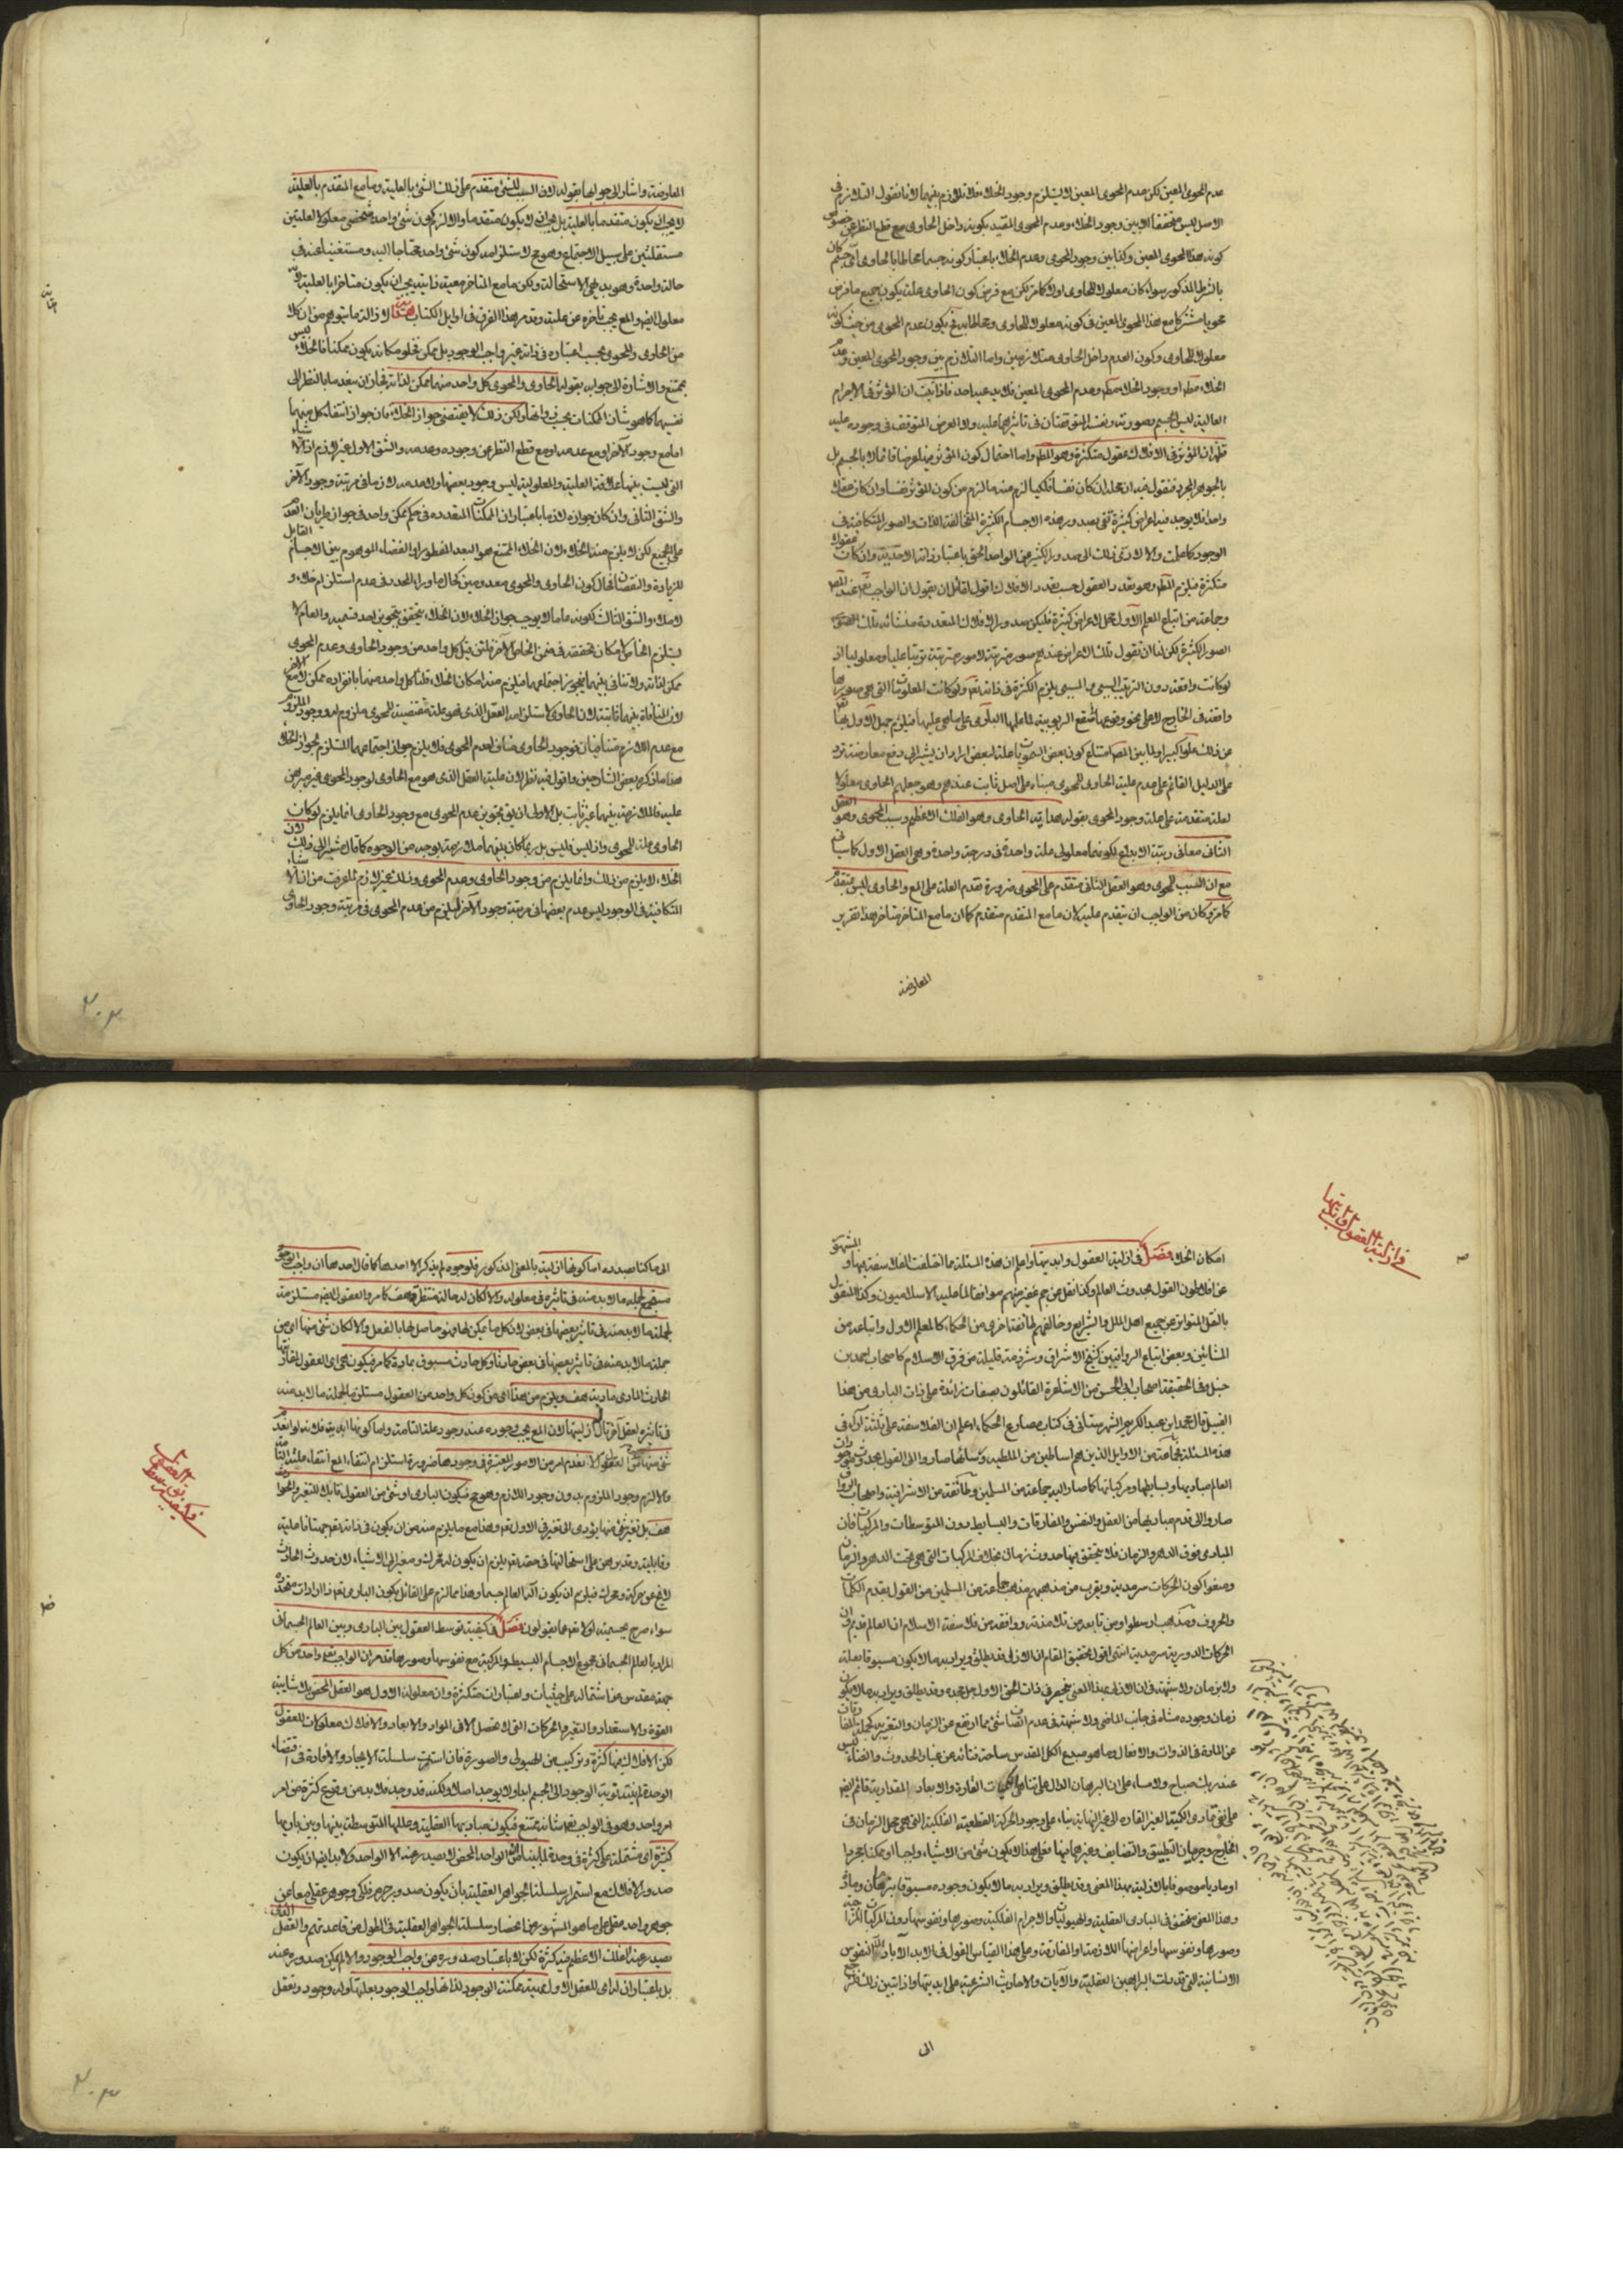 عدم المحوى المعين لكن عدم المحوى المعين لا يستلزم وجود الخلاء فلا تلازم بينهما لانا نقول التلازم فى
الاصل ليس متحققا الا بين وجود الخلاء وعدم المحوى المقيد بكونه داخل الحاوى مع قطع النظر عن خصوص
كونه هذا المحوى المعين وكذا بين وجود المحوى وعدم الخلاء باعتبار كونه جسما محاطا بالحاوى اى جسم كان
بالشرط المذكور سواء كان معلولا للحاوى اولا كما مر لكن مع فرض كون الحاوى علة يكون جميع ما فرض
محويا مشتركا مع هذا المحوى المعين فى كونه معلولا للحاوى ومحاطا به فيكون عدم المحوى من حيث كونه
معلولا للحاوى وكون العدم داخل الحاوى متلازمين واما التلازم بين وجود المحوى المعين وعدم
الخلاء مط او وجود الخلاء مط وعدم المحوى المعين فلا يدعيه احد فاذا ثبت ان المؤثر فى الاجرام
العالية ليس الجسم وصورته ونفسه لتوقف تاثيرهما عليه ولا العرض المتوقف فى وجوده عليه
فظهر ان المؤثر فى الافلاك عقول متكثرة وهو المط واما احتمال كون المؤثر فيها عرضا قائما لا بالجسم بل
بالجوهر المجرد فنقول فيه ان محله ان كان نفسا فلكيا لزم منه ما لزم من كون المؤثر نفسا وان كان عقلا
واحدا فلا يوجد فيه اعراض كثيرة تفى بصدور هذه الاجسام الكثيرة المتخالفة الذات والصور المتكافئة فى
الوجود كما علمت والا لادى ذلك الى صدور الكثير عن الواحد الحق باعتبار ذاته الاحدية وان كانت عقولا
متكثرة فيلزم المط وهو تعدد العقول حسب تعدد الافلاك اقول لقائل ان يقول ان الواجب تع عند المص
وجماعة من اتباع المعلم الاول محل لاعراض كثيرة فليكن صدور الافلاك المتعددة منشائه تلك
الصور الكثيرة لكن لنا ان نقول تلك الاعراض عندهم صور مترتبة لا صور مترتبة ترتيبا عليا ومعلوليا اذ
لو كانت واقعة دون الترتيب السببى والمسببى يلزم الكثرة فى ذاته تع ولو كانت المعلولات التى هى صورها
واقعة فى الخارج لا على نحو وقوعها فى صقع الربوبية لما علمها البارى على ما هى عليها فيلزم جهل الاول تعالى
عن ذلك علوا كبيرا ولما بين المص امتناع كون بعض السمويات علة لبعض اراد ان يشير الى دفع معارضة ترد
على الدليل القائم على عدم علية الحاوى للمحوى مبناه على اصل ثابت عندهم وهو جعلهم الحاوى معلولا
لعلة متقدمة على علة وجود المحوى بقوله هداية الحاوى وهو الفلك الاعظم وسبب المحوى وهو العقل
الثانى معا فى رتبة الابداع لكونهما معلولى علة واحدة فى درجة واحدة وهى العقل الاول كما سياتى
مع ان السبب للمحوى وهو العقل الثانى متقدم على المحوى ضرورة تقدم العلة على المع والحاوى ليس متقدم
كما مر وكان من الواجب ان يتقدم عليه لان ما مع المتقدم متقدم كما ان ما مع المتاخر متاخر هذا تقرير
المعارضة
المعارضة واشار الى جوابها بقوله لان السبب للشئ متقدم على ذلك الشئ بالعلية وما مع المتقدم بالعلية
لا يجب ان يكون متقدما بالعلية بل يجب ان لا يكون متقدما والا لزم كون شئ واحد شخصى معلولا لعلتين
مستقلتين على سبيل الاجتماع وهو مح لاستلزامه كون شئ واحد محتاجا اليه ومستغنيا عنه فى
حالة واحدة وهو بديهى الاستحالة ولكن ما مع المتاخر معية ذاتية يجب ان يكون متاخرا بالعلية لانه
معلول ايضا والمع يجب تاخره عن علية وقد مر هذا الفرق فى اوايل الكتاب هداية ازالة ما يتوهم من ان كلا
من الحاوى والمحوى بحسب اعتباره فى ذاته غير واجب الوجود بل ممكن فخلو مكانه يكون ممكنا فالخلاء ليس
بممتنع والاشارة الى جوابه بقوله الحاوى والمحوى كل واحد منهما ممكن لذاته فجاز ان ينعدما بالنظر الى
نفسيهما كما هو شان الممكنات بحسب ذواتها ولكن ذلك لا يقتضى جواز الخلاء فان جواز انتفاء كل منهما
اما مع وجود الآخر او مع عدمه او مع قطع النظر عن وجوده وعدمه والشق الاول غير لازم اذ الاشياء
التى ليست بينها علاقة العلية والمعلولية ليس وجود بعضها ولا عدمه لازما فى مرتبة وجود الآخر
والشق الثانى وان كان جوازه لازما باعتبار ان الممكنات المتعددة فى حكم ممكن واحد فى جواز طريان العدم
على الجميع لكن لا يلزم منه الخلاء لان الخلاء الممتنع هو البعد المفطور او الفضاء الموهوم بين الاجسام القابل
للزيادة والنقصان فحال كون الحاوى والمحوى معدومين كحال ما وراء المحدد فى عدم استلزام خلاء و
لا ملاء والشق الثالث لكونه عاما لا يوجب جواز الخلاء لان الخلاء يتحقق بتجويز احد قسميه والعام لا
يستلزم الخاص لامكان تحققه فى ضمن الخاص الآخر فلئن قيل كل واحد من وجود الحاوى وعدم المحوى
ممكن لذاته ولا تنافى بينهما فيجوز اجتماعهما فيلزم منه امكان الخلاء قلنا كل واحد منهما بانفراده ممكن لا مع الآخر
لان المنافاة بينهما ثابتة لان الحاوى لاستلزامه العقل الذى هو علة مقتضية للمحوى ملزوم له ووجود الملزوم
مع عدم اللازم متنافيان فوجود الحاوى مناف لعدم المحوى فلا يلزم جواز اجتماعهما المستلزم لجواز الخلاء
هذا ما ذكره بعض الشارحين واقول فيه نظر لان علية العقل الذى هو مع الحاوى لوجود المحوى غير مبرهن
عليه فالملازمة بينهما غير ثابت بل الاولى ان يق تجويز عدم المحوى مع وجود الحاوى انما يلزم لو كان
الحاوى علة للمحوى واذ ليس فليس بل ربما كان بينهما ملازمة بوجه من الوجوه كما قال مشيرا الى ذلك لان
الخلاء لا يلزم من ذلك وانما يلزم من وجود الحاوى وعدم المحوى وذلك غير لازم لما عرفت من ان الاشياء
المتكافئة فى الوجود ليس عدم بعضها فى مرتبة وجود الآخر ليلزم من عدم المحوى فى مرتبة وجود الحاوى
٢٠٢
فى ازلية العقول وابديتها
امكان الخلاء فصل فى ازلية العقول وابديتها واعلم ان هذه المسئلة مما اختلفت الفلاسفة فيها والمشهور
عن افلاطون القول بحدوث العالم وكذا نقل عن جم غفير منهم موافقا لما عليه الاسلاميون وكذا المنقول
بالنقل المتواتر عن جميع اهل الملل والشرايع وخالفهم طائفة اخرى من الحكماء كالمعلم الاول واتباعه من
المشائين وبعض اتباع الرواقيين كشيخ الاشراق وشرذمة قليلة من فرق الاسلام كاصحاب احمد بن
حنبل وفى الحقيقة اصحاب ابى الحسن من الاشاعرة القائلون بصفات زائدة على ذات البارى من هذا
القبيل قال محمد بن عبد الكريم الشهرستانى فى كتاب مصارع الحكماء اعلم ان الفلاسفة على ثلثة آراء فى
هذه المسئلة فجماعة من الاوايل الذين هم اساطين من الملطيه وشاميا صاروا الى القول بحدوث موجودات
العالم مباديها وبسايطها ومركباتها كما صار اليه جماعة من المسلمين وطائفة من الاشراقية واصحاب الرواق
صاروا الى قدم مباديها من العقل والنفس والمفارقات والبسايط دون المتوسطات والمركبات فان
المبادى فوق الدهر والزمان فلا يتحقق فيها حدوث زمانى بخلاف المركبات التى هى تحت الدهر والزمان
ومنعوا كون الحركات سرمدية ويقرب من مذهبهم مذهب جماعة من المسلمين من القول بقدم الكلمات
والحروف ومذهب ارسطو ومن تابعه من تلامذته ووافقه من فلاسفة الاسلام ان العالم قديم وان
الحركات الدورية سرمدية انتهى اقول تحقيق المقام ان الازلى قد يطلق ويراد به ما لا يكون مسبوقا بعلة
ولا بزمان ولا شبهة فى ان الازلى بهذا المعنى منحصر فى ذات الحق الاول جل مجده وقد يطلق ويراد به ما لا يكون
زمان وجوده متناه فى جانب الماضى ولا شبهة فى عدم اتصاف شئ مما ارتفع عن الزمان والتغير به كجملة المفارقات
عن المادة فى الذوات والافعال وما هو مبدع الكل المقدس ساحة فنائه عن غبار الحدوث والفناء ليس
عند ربك صباح ولا مساء على ان البرهان الدال على تناهى الكميات القارة والابعاد المقدارية قائم ايضا
على نفى تمادى الكمية الغير القارة الى غير النهاية بناء على وجود الحركة القطعية الفلكية التى هى محل الزمان فى
الخارج وجريان التطبيق والتضايف وغيرهما فيها فعلى هذا لا يكون شئ من الاشياء واجبا او ممكنا مجردا
او ماديا موصوفا بالازلية بهذا المعنى وقد يطلق ويراد به ما لا يكون وجوده مسبوقا بزمان ومادة
وهذا المعنى متحقق فى المبادى العقلية والهيوليات والاجرام الفلكية وصورها ونفوسها دون المركبات المزاجية
وصورها ونفوسها واعراضها اللازمة والمفارقة وعلى هذا القياس القول فى الابد الآباد النفوس
الانسانية التى قد دلت البراهين العقلية والآيات والاحاديث الشرعية على ابديتها واذا تبين ذلك فنرجع
الى
الى ما كنا بصدده اما كونها ازلية بالمعنى المذكور فلوجوه لم يذكر الا احدها كما قال احدها ان واجب الوجود
مستجمع لجملة ما لا بد منه فى تاثيره فى معلوله والا لكان له حالة منتظرة هف كما مر والعقول ايضا مستلزمة
لجملة ما لا بد منه فى تاثير بعضها فى بعض لان كل ما يمكن لها فهو حاصل لها بالفعل والا لكان شئ منها اى من
جملة ما لا بد منه فى تاثير بعضها فى بعض حادثا وكل حادث مسبوق بمادة كما مر فيكون هى اى العقول لمقارنتها
الحادث المادى مادية هف ويلزم من هذا اى من كون كل واحد من العقول مستلزما لجملة ما لا بد منه
فى تاثيره لعقل آخر ازليتها لان المع يجب وجوده عند وجود علته التامة واما كونها ابدية فلانه لو انعدم
شئ منها لانعدم امر من الامور المعتبرة فى وجودها ضرورة استلزام انتفاء المع انتفاء علته التامة
والا لزم وجود الملزوم بدون وجود اللازم وهو مح فيكون البارى او شئ من العقول قابلا للتغير والحوادث
هف بل تغير شئ منها يؤدى الى تغير فى الاول تع وهذا مع ما يلزم منه من ان يكون فى ذاته تع جهتا فاعلية
وقابلية وقد برهن على استحالتها فى حقه تع يلزم ان يكون له محرك ومغير الى الاشياء لان حدوث الحادث
لا يقع عن حركة ومحرك فيلزم ان يكون اله العالم جسما وهذا مما لزم على القائل بكون البارى تع ذا ارادات متجددة
سواء صرح بجسميته او لا تع عما يقولون فصل فى كيفية توسط العقول بين البارى وبين العالم الجسمانى
المراد بالعالم الجسمانى مجموع الاجسام البسيط والمركبة مع نفوسها وصورها قد مر ان الواجب تع واحد من كل
جهة مقدس عن اشتماله على حيثيات واعتبارات متكثرة وان معلوله الاول هو العقل المحض بلا شايبة
القوة والاستعداد والتغير والحركات التى لا تحصل الا فى المواد والابعاد والافلاك معلولات للعقول
لكن الافلاك فيها كثرة وتركيب من الهيولى والصورة فان استمرت سلسلة الايجاد والافادة فى اقتضاء
الوحدة لم ينته توبة الوجود الى الجسم ابدا ولا يوجد اصلا ولكنه قد وجد فلا بد من وقوع كثرة من امر
امر واحد وهو فى الواجب تع شانه ممتنع فيكون مباديها العقلية وعللها المتوسطة بينها وبين باريها
كثيرة اى مشتملة على كثرة فى وحدة لما بينا ان الواحد المحض لا يصدر عنه الا الواحد ولا بد ايضا ان يكون
صدور الافلاك مع استمرار سلسلة الجواهر العقلية بان يكون صدور جرم فلكى وجوهر عقلى معا عن
جوهر واحد عقلى على ما هو المشهور من انحصار سلسلة الجواهر العقلية فى الطول عن قاعدتهم والعقل الذى
يصدر عنه الفلك الاعظم فيه كثرة لكن لا باعتبار صدوره عن واجب الوجود والا لم يمكن صدوره عنه
بل باعتبار ان له اى للعقل الاول مهية ممكنة الوجود لذاتها واجب الوجود بعلتها وله وجود وتعقل
فى كيفية توسط العقول
٢٠٣